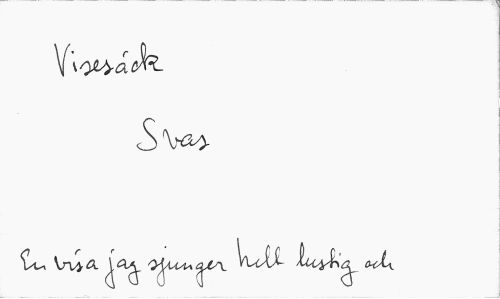 Visesäck
Svas
En visa jag sjunger helt lustig och